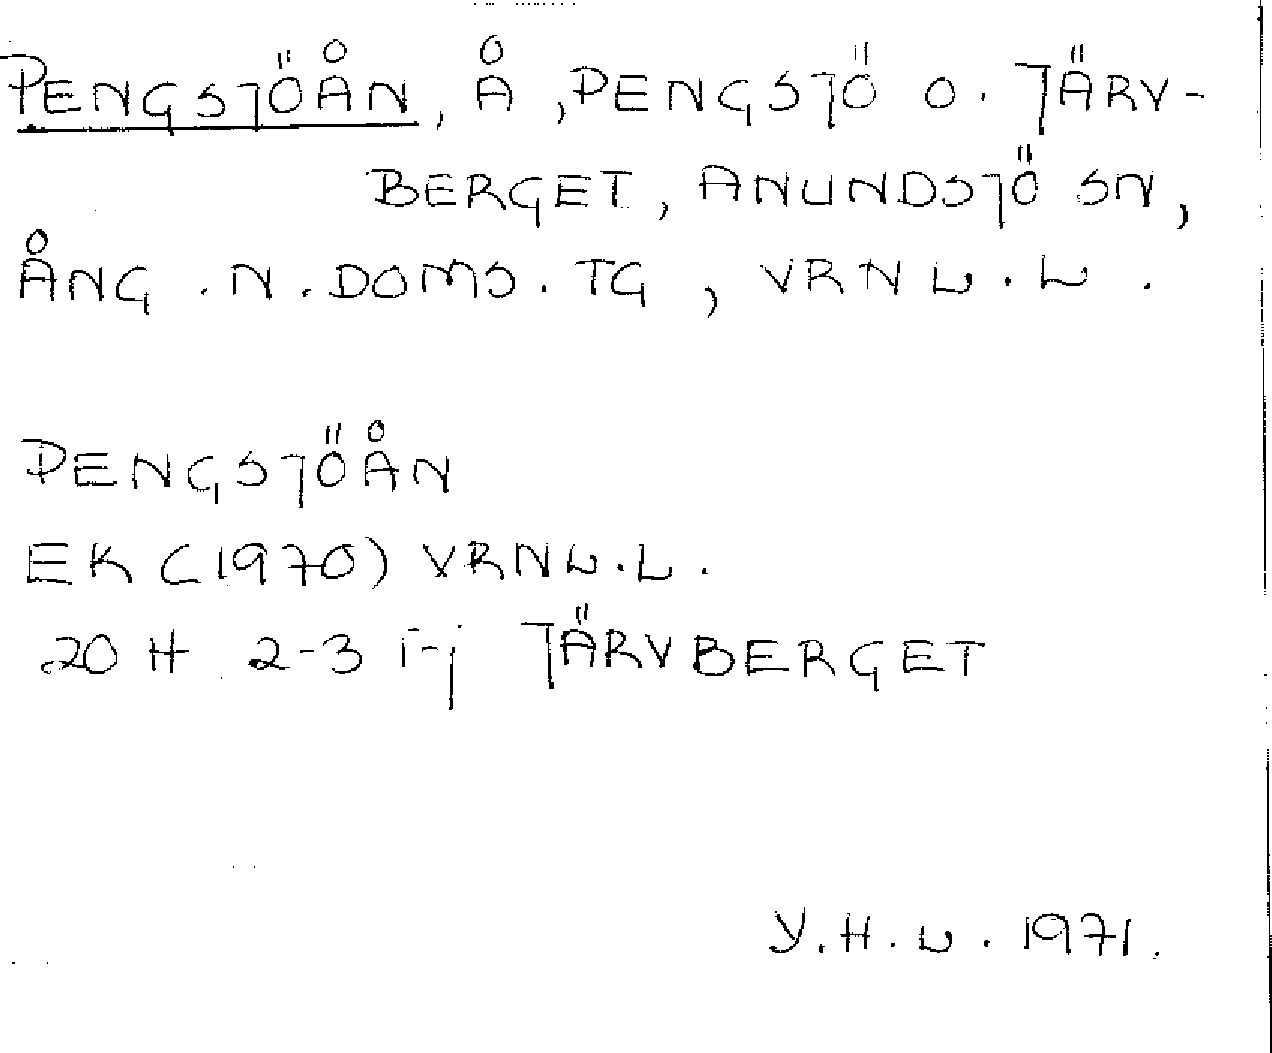 PENGSJÖÅN, Å, PENGSJÖ O. JÄRV-
BERGET, ANUNDSJÖ SN,
ÅNG. N. DOMS. TG, VRNL.L.
PENGSJÖÅN
EK (1970) VRNL.L.
20 H 2-3 i-j JÄRVBERGET
Y.H.L. 1971.